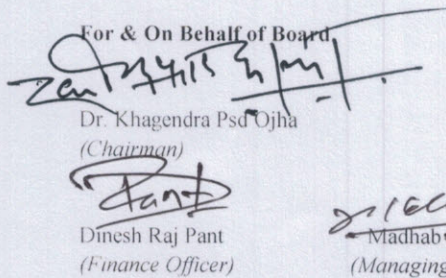 For & On Behalf of Board
Dr. Khagendra Psd Ojha
(Chairman)
Pant
Dinesh Raj Pant
Madhab
(Finance Officer)
(Managing